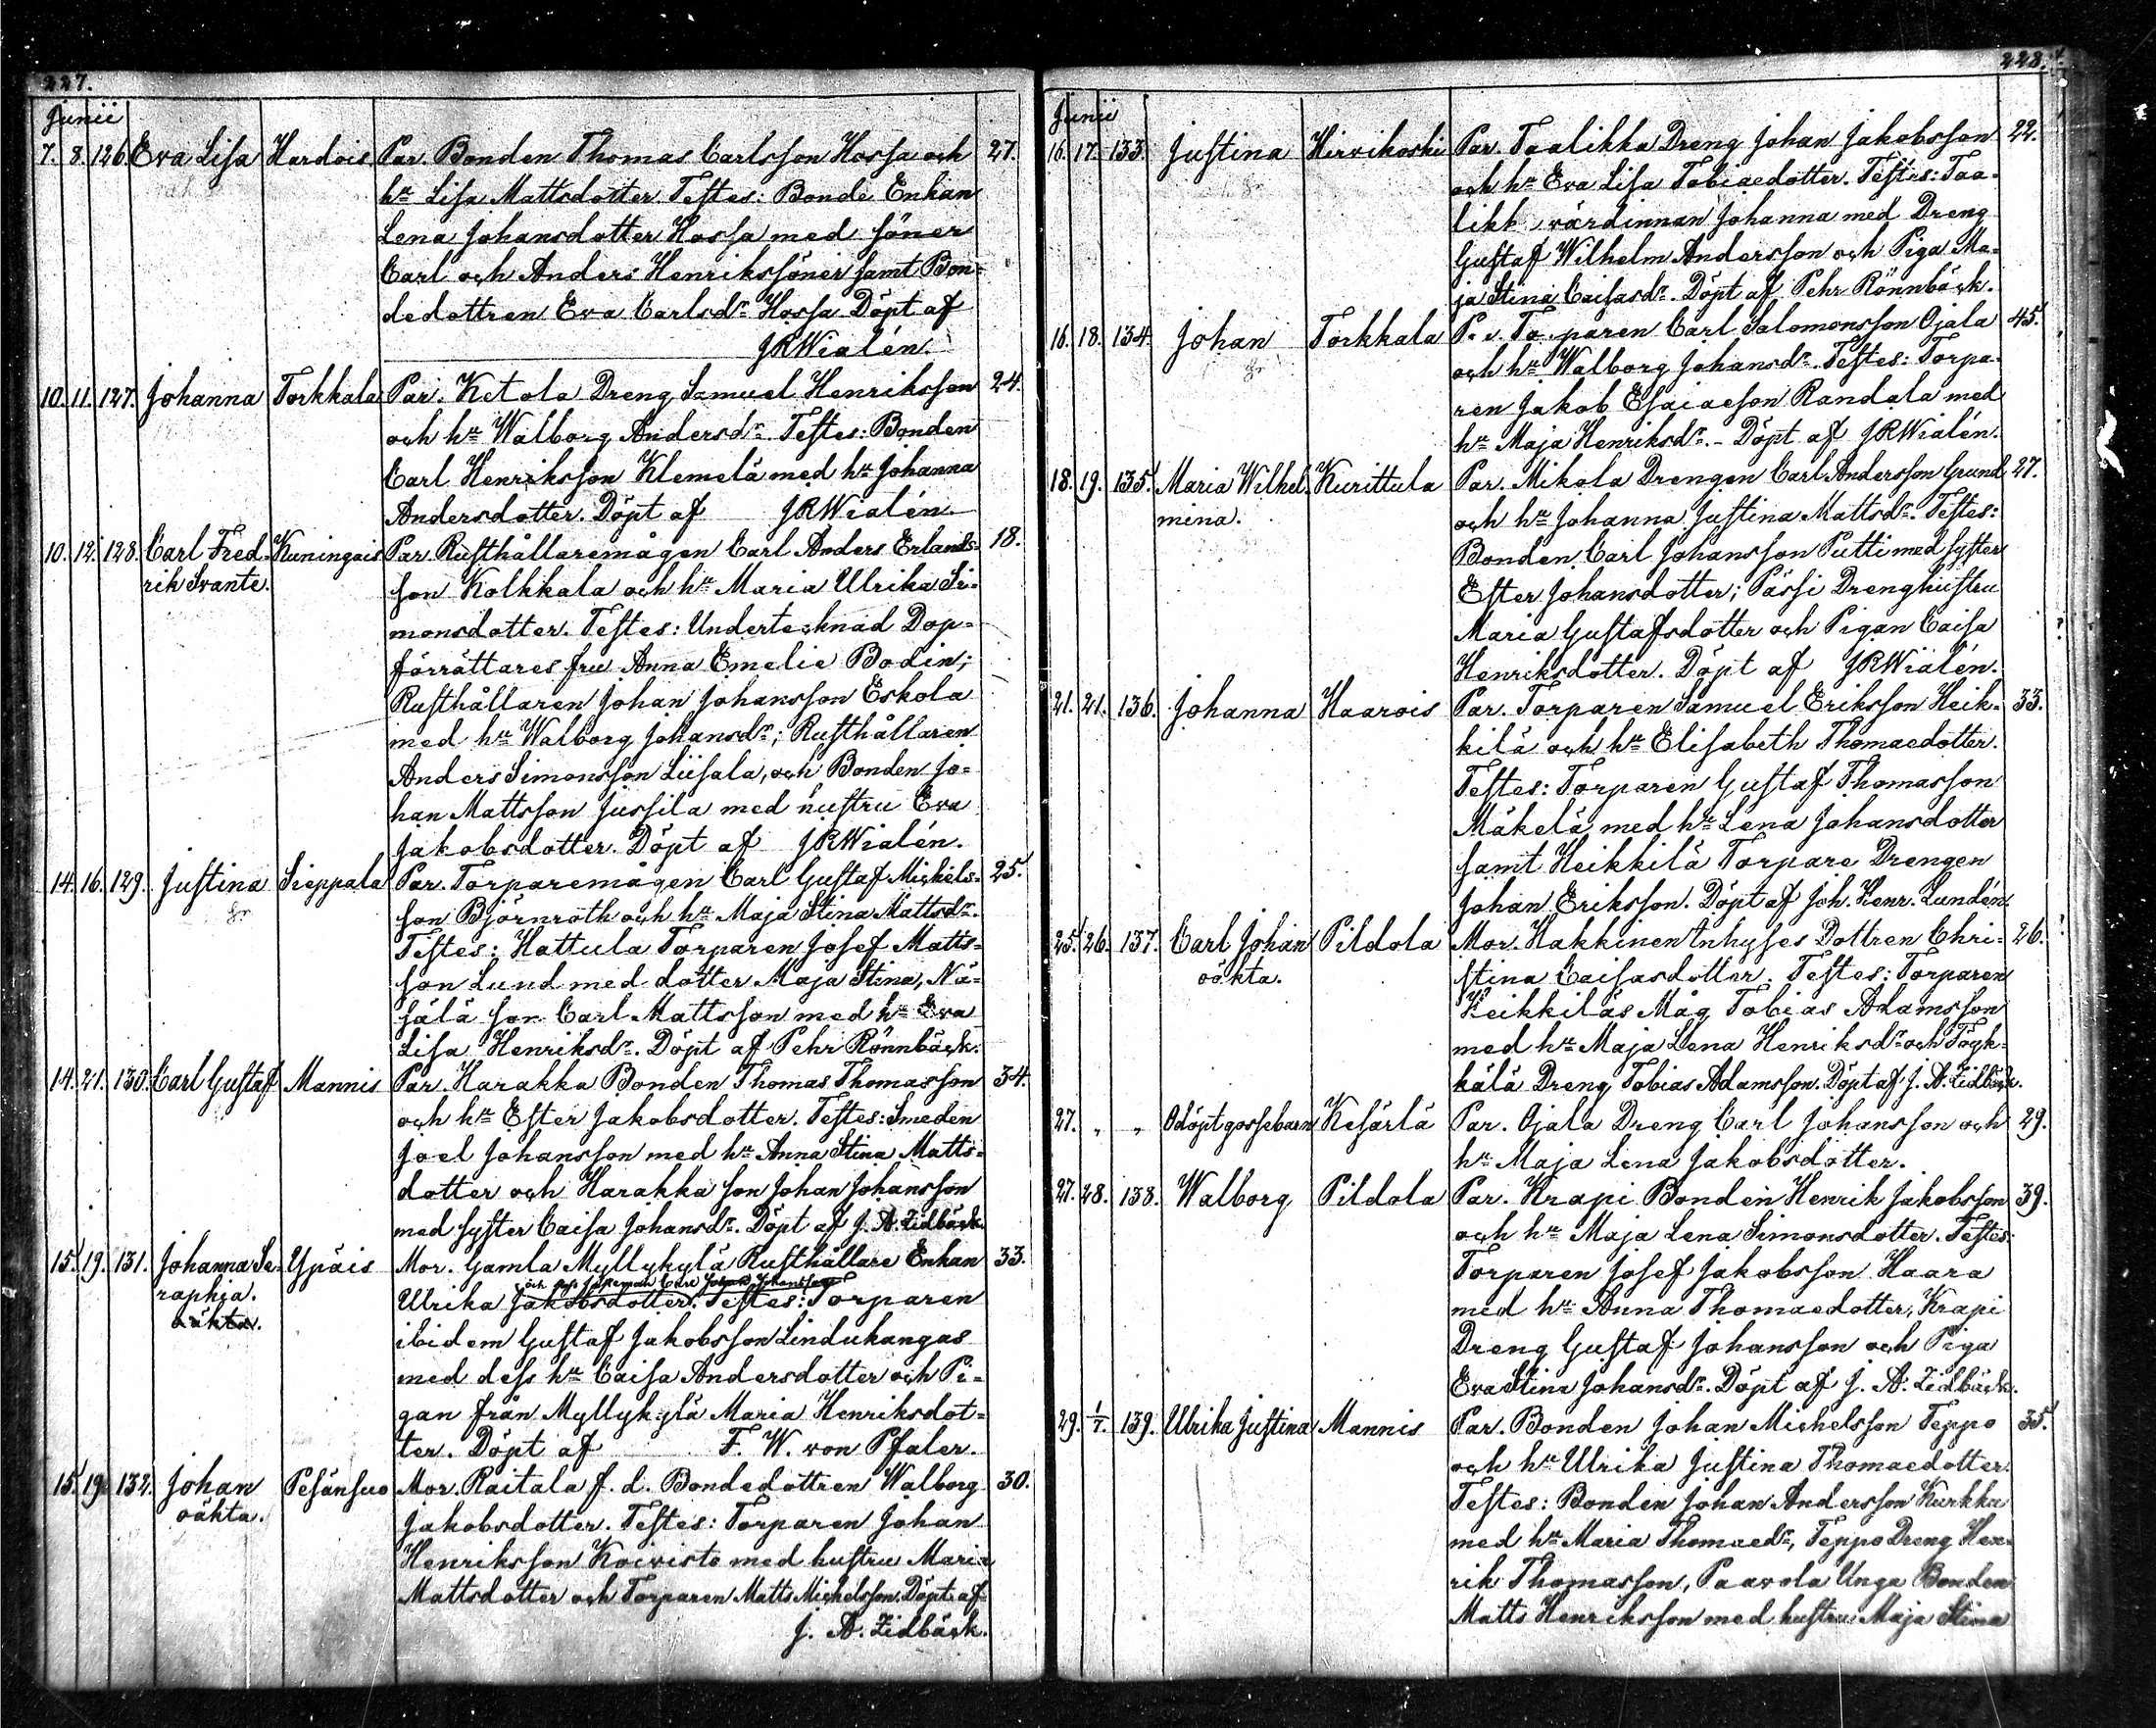 227.
Junii
7. 8. 126. Eva Lisa Hardois Par. Bonden Thomas Carlsson Hossa och 27.
hu Lisa Mattsdotter. Testes: Bonde Enkan
Lena Johansdotter Hossa med söner
Carl och Anders Henrikssöner samt Bon-
dedottren Eva Carlsdr Hossa. Döpt af
JRWialén.
10. 11. 127. Johanna Torkkala Par. Ketola Dreng Samuel Henriksson 24.
och hu Walborg Andersdr. Testes: Bonden
Carl Henriksson Klemelä med hu Johanna
Andersdotter. Döpt af JRWialén
10. 12. 128. Carl Fred- Kuningais Par. Rusthållaremågen Carl Anders Erlands- 18.
rik Svante. son Kolkkala och hu Maria Ulrika Si-
monsdotter. Testes: Undertecknad Dop-
förrättares fru Anna Emelie Bodin;
Rusthållaren Johan Johansson Eskola
med hu Walborg Johansdr; Rusthållaren
Anders Simonsson Liisala, och Bonden Jo-
han Mattsson Jussila med hustru Eva
Jakobsdotter. Döpt af JRWialén.
14. 16. 129. Justina Sieppala Par. Torparemågen Carl Gustaf Michels- 25.
son Björnroth och hu Maja Stina Mattsdr.
Testes: Hattula Torparen Josef Matts-
son Lund med dotter Maja Stina, Nä-
sälä son Carl Mattsson med hu Eva
Lisa Henriksdr. Döpt af Pehr Rönnbäck.
14. 21. 130. Carl Gustaf Mannis Par. Harakka Bonden Thomas Thomasson 34.
och hu Ester Jakobsdotter. Testes: Smeden
Joel Johansson med hu Anna Stina Matts-
dotter och Harakka son Johan Johansson
med syster Caisa Johansdr. Döpt af J. A. Zidbäck.
15. 19. 131. Johanna Se- Ypäis Mor. Gamla Myllykylä Rusthållare Enkan 33.
raphia. Ulrika Jakobsdotter. Testes: Torparen
oäkta. ibidem Gustaf Jakobsson Lindukangas
med dess hu Caisa Andersdotter och Pi-
gan från Myllykylä Maria Henriksdot-
ter. Döpt af F. W. von Pfaler.
15. 19. 132. Johan Pesänsuo Mor. Raitala f. d. Bondedottren Walborg 30.
oäkta. Jakobsdotter. Testes: Torparen Johan
Henriksson Koivisto med hustru Maria
Mattsdotter och Torparen Matts Michelsson. Döpt af
J. A. Zidbäck.
228.
Junii
16. 17. 133. Justina Hirvikoski Par. Taalikka Dreng Johan Jakobsson 22.
och hu Eva Lisa Tobiaedotter. Testes: Taa-
likk värdinnan Johanna med Dreng
Gustaf Wilhelm Andersson och Piga Ma-
ja Stina Caisasdr. Döpt af Pehr Rönnbäck.
16. 18. 134. Johan Torkkala Par. Torparen Carl Salomonsson Ojala 45.
och hu Walborg Johansdr. Testes: Torpa-
ren Jakob Esaiaeson Randala med
hu Maja Henriksdr. - Döpt af JRWialén.
18. 19. 135. Maria Wilhel- Kurittula Par. Mikola Drengen Carl Andersson Grund 27.
mina. och hu Johanna Justina Mattsdr. Testes:
Bonden Carl Johansson Putti med syster
Ester Johansdotter; Pässi Drenghustru
Maria Gustafsdotter och Pigan Caisa
Henriksdotter. Döpt af JRWialén.
21. 21. 136. Johanna Haarois Par. Torparen Samuel Eriksson Heik- 33.
kilä och hu Elisabeth Thomaedotter.
Testes: Torparen Gustaf Thomasson
Mäkelä med hu Lena Johansdotter
samt Heikkilä Torpare Drengen
Johan Eriksson. Döpt af Joh. Henr. Lundén.
25. 26. 137. Carl Johan Pildola Mor. Hakkinen Inhyses Dottren Chri- 26.
oäkta. stina Caisasdotter. Testes: Torparen
Heikkiläs Måg Tobias Adamsson
med hu Maja Lena Henriksdr och Töyk-
kälä Dreng Tobias Adamsson. Döpt af J. A. Zidbäck.
27. " " Odöpt gossebarn Kesärlä Par. Ojala Dreng Carl Johansson och 29.
hu Maja Lena Jakobsdotter.
27. 28. 138. Walborg Pildola Par. Krapi Bonden Henrik Jakobsson 39.
och hu Maja Lena Simonsdotter. Testes:
Torparen Josef Jakobsson Haara
med hu Anna Thomaedotter, Krapi
Dreng Gustaf Johansson och Piga
Eva Stina Johansdr. Döpt af J. A. Zidbäck.
29. 1/7. 139. Ulrika Justina Mannis Par. Bonden Johan Michelsson Teppo 35.
och hu Ulrika Justina Thomaedotter.
Testes: Bonden Johan Andersson Kurkka
med hu Maria Thomaedr, Teppo Dreng Hen-
rik Thomasson, Paavola Unga Bonden
Matts Henriksson med hustru Maja Stina